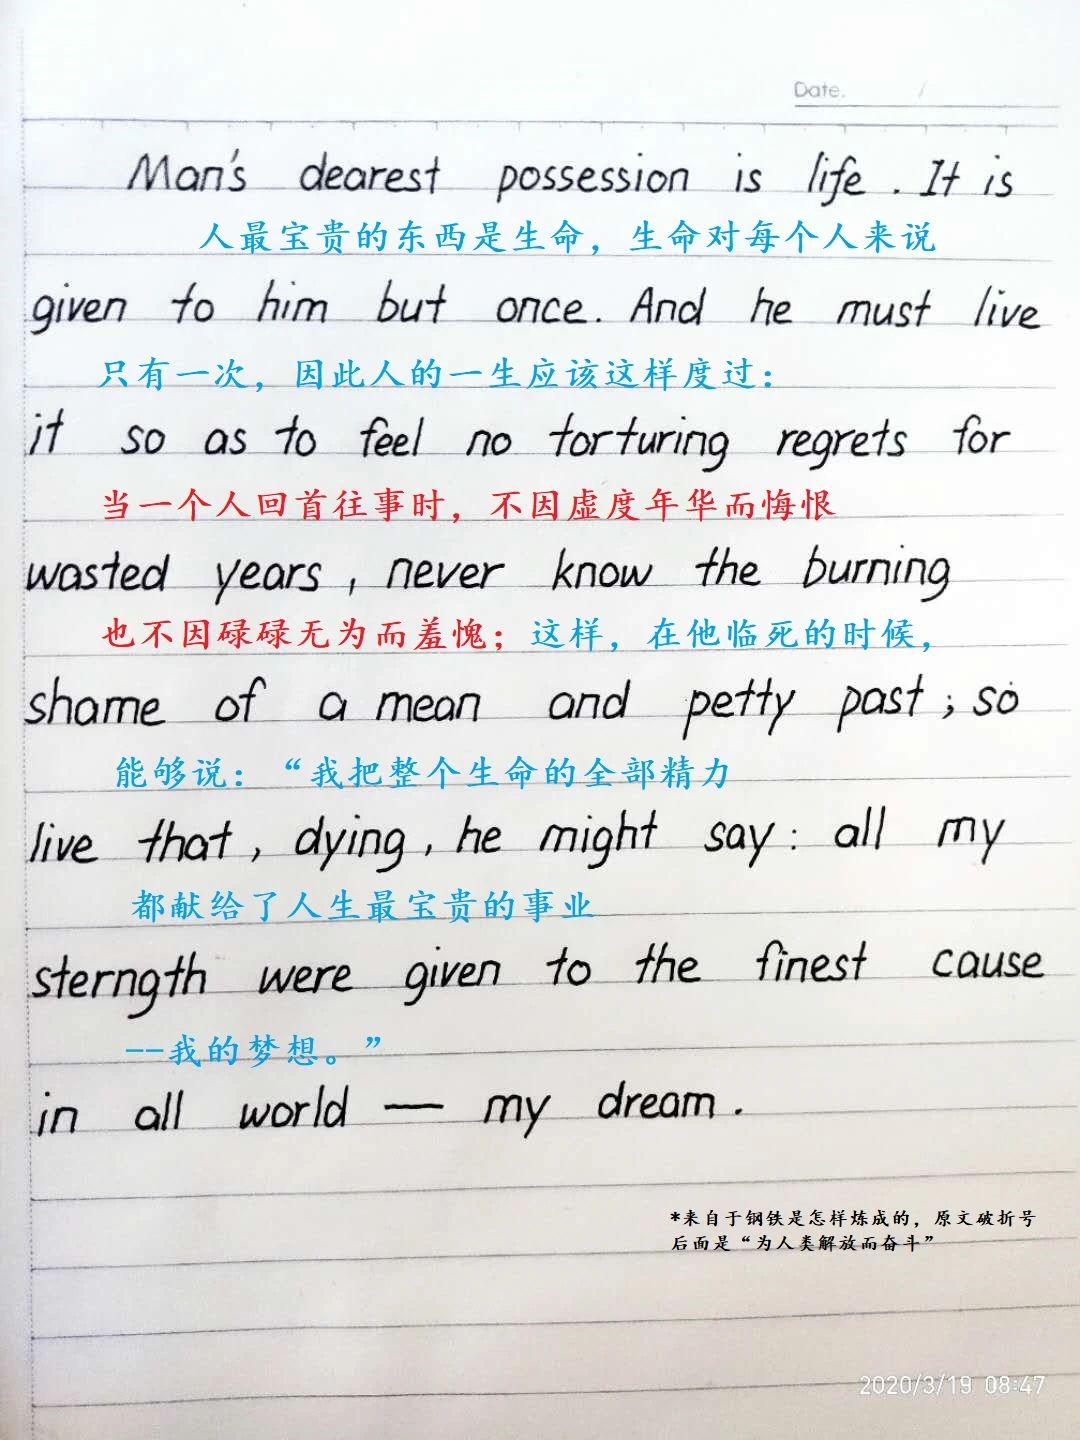 Date. /
Man's dearest possession is life . It is
人最宝贵的东西是生命，生命对每个人来说
given to him but once. And he must live
只有一次，因此人的一生应该这样度过：
it so as to feel no torturing regrets for
当一个人回首往事时，不因虚度年华而悔恨
wasted years , never know the burning
也不因碌碌无为而羞愧；这样，在他临死的时候，
shame of a mean and petty past ; so
能够说：“我把整个生命的全部精力
live that , dying , he might say : all my
都献给了人生最宝贵的事业
sterngth were given to the finest cause
--我的梦想。”
in all world — my dream .
*来自于钢铁是怎样炼成的，原文破折号
后面是“为人类解放而奋斗”
2020/3/19 08:47